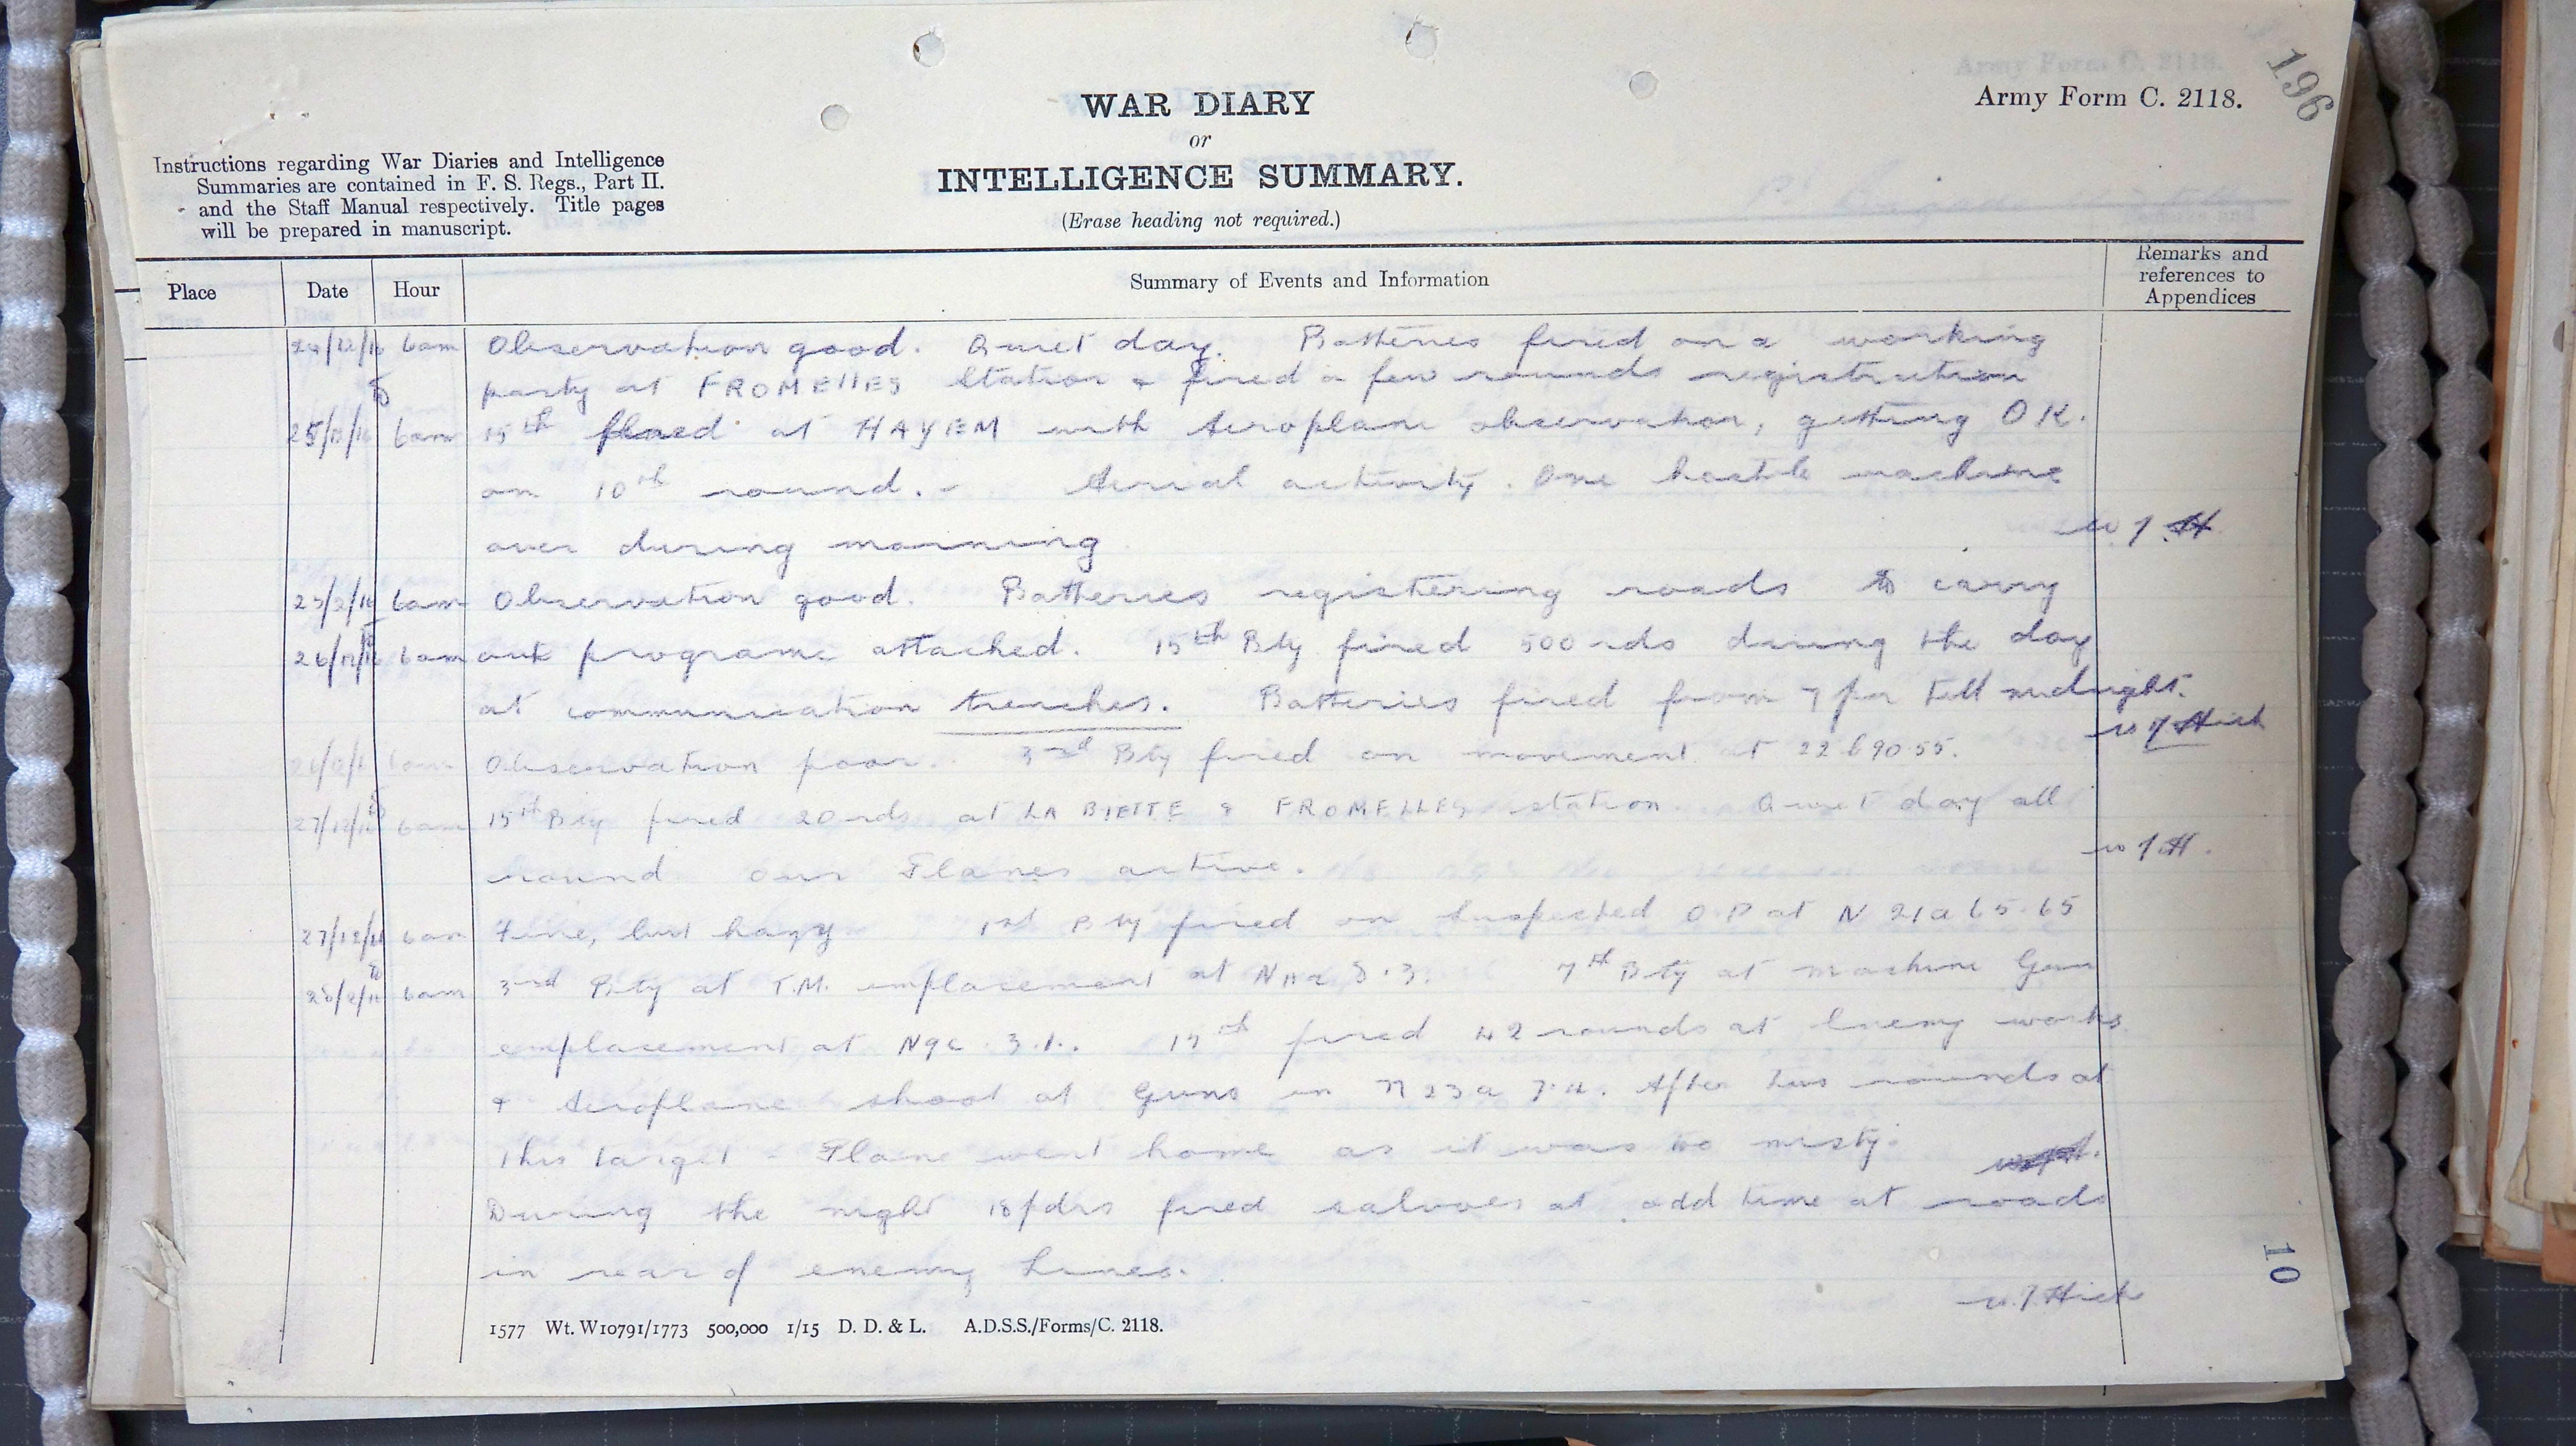 196
Army Form C. 2118.
WAR DIARY
or
INTELLIGENCE SUMMARY.
(Erase heading not required.)
Instructions regarding War Diaries and Intelligence
Summaries are contained in F. S. Regs., Part II.
and the Staff Manual respectively. Title pages
will be prepared in manuscript.
Place Date Hour Summary of Events and Information Remarks and references to Appendices
24/12/16 6am Observation good. Quiet day. Batteries fired on a working
to party at FROMEllES Station & fired a few rounds registration
25/12/16 6am 15th fired at HAYEM with Aeroplane observation, getting OK.
on 10th round. - Aerial activity. One hostile machine
over during morning
25/12/16 6am Observation good. Batteries registering roads to carry
26/12/16 6am out programe attached. 15th Bty fired 500 rds during the day
at communication trenches. Batteries fired from 7 pm till midnight.
26/12/16 6am Observation poor. 3rd Bty fired on movement at 22 b 90 55.
27/12/16 6am 15th Bty fired 20 rds at LA BIETTE & FROMELLES station. Quiet day all
round our Planes active.
27/12/16 6am Fine, but hazy 1st Bty fired on suspected O.P at N 21a 65.65
28/12/16 6am 3rd Bty at T.M. emplacement at 8.3. 7th Bty at machine Gun
emplacement at N9c. 3.1. 15th fired 42 rounds at Enemy works
& Aeroplane shoot at Guns in N 23a 7.4. After two rounds at
this target - Plane went home as it was too misty.
During the night 18pdrs fired salvoes at odd time at roads
in rear of enemy lines.
10
1577 Wt. W10791/1773 500,000 1/15 D. D. & L. A.D.S.S./Forms/C. 2118.